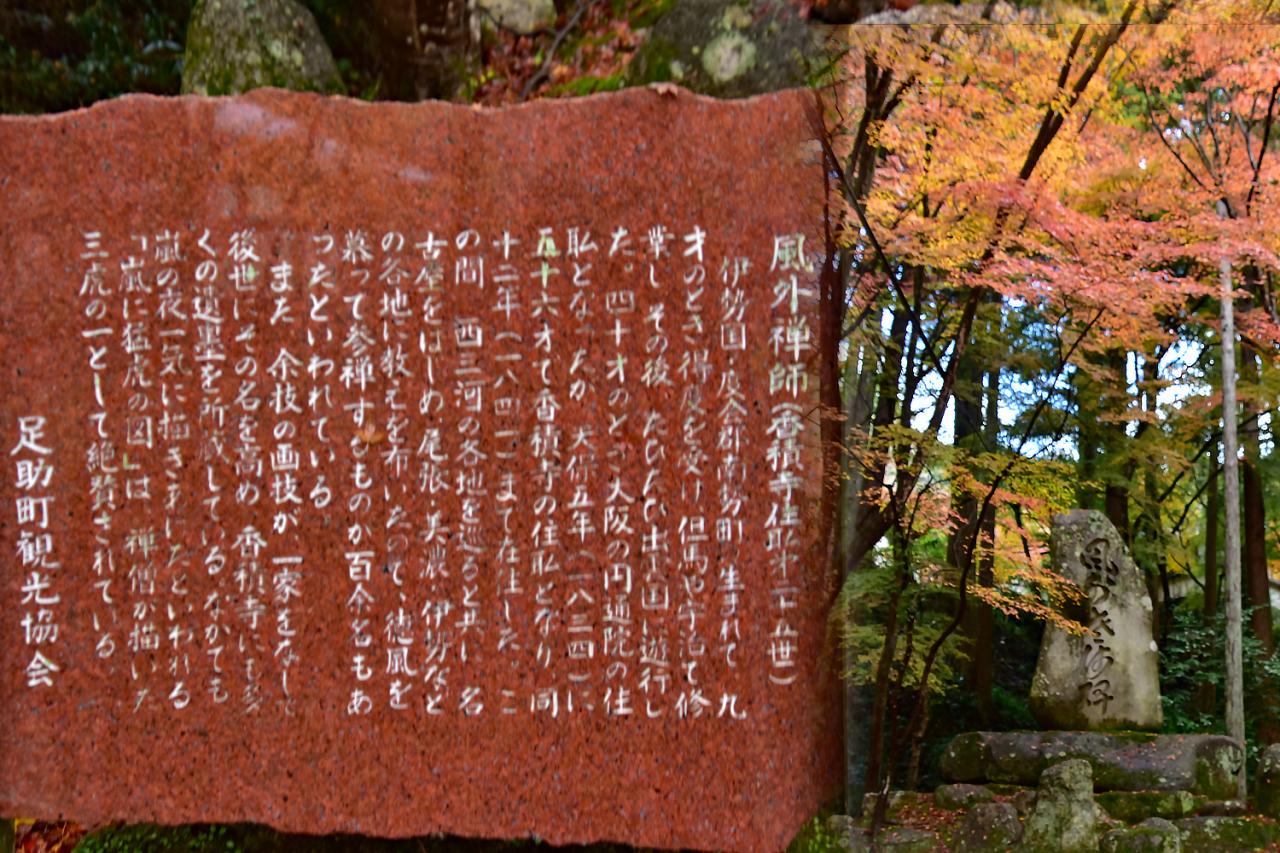 風外禅師(香積寺住職才二十五世)
伊勢国・度会郡南勢町に生まれて、九
才のとき得度を受け 但馬や宇治で修
業し その後 たびたび出雲国に遊行し
た。四十才のとき 大阪の円通院の住
職となったが 天保五年(一八三四)に
五十六才で香積寺の住職となり、同
十二年(一八四一)まで在住した。こ
の間 西三河の各地を巡ると共に 名
古屋をはじめ、尾張、美濃、伊勢など
の各地に教えを布いたので、徳風を
慕って参禅するものが百余名もあ
ったといわれている。
また 余技の画技が、一家をなして
後世にその名を高め 香積寺にも多
くの遺墨を所蔵しているなかでも
嵐の夜一気に描きあげたといわれる
「嵐に猛虎の図」は 禅僧が描いた
三虎の一として絶賛されている。
足助町観光協会